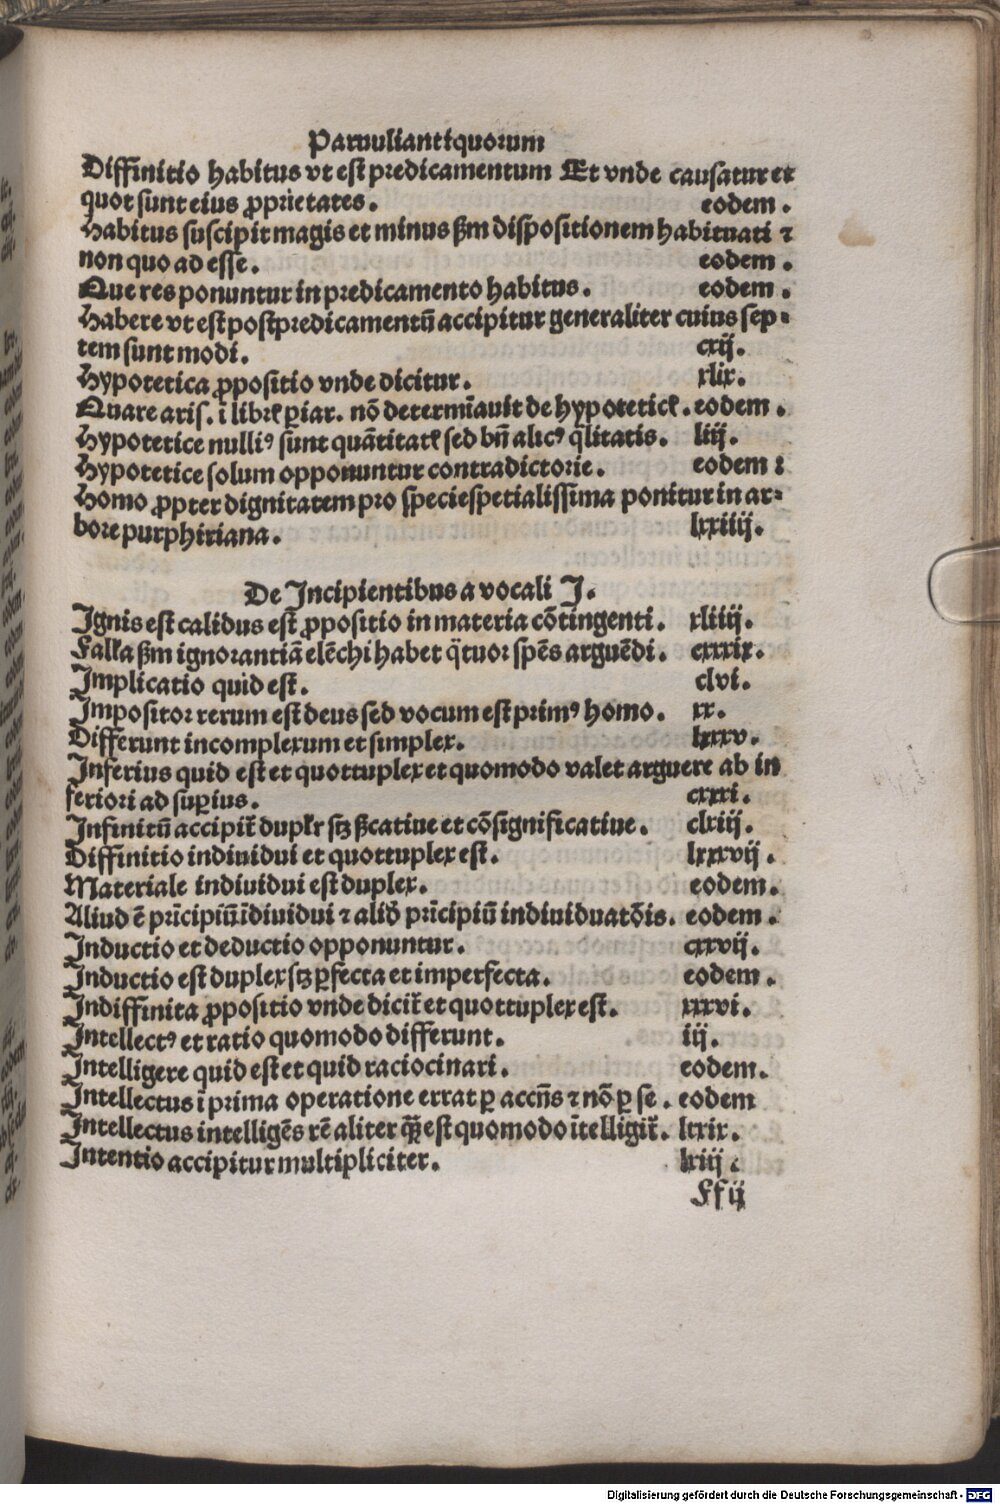 Paruuli antiquorum
Diffinitio habitus vt est predicamentum Et vnde causatur et
quot sunt eius ꝓprietates. eodem.
Habitus suscipit magis et minus ẜm dispositionem habituati ⁊
non quo ad esse. eodem.
Que res ponuntur in predicamento habitus. eodem.
Habere vt est postpredicamentū accipitur generaliter cuius sep⸗
tem sunt modi. cxij.
Hypotetica ꝓpositio vnde dicitur. xlix.
Quare aris. ī libr̄ ꝑiar. nō determīauit de hypotetic̄. eodem.
Hypotetice nulliꝰ sunt quātitat̄ sed bn̄ alicꝰ q̄litatis. liij.
Hypotetice solum opponuntur contradictorie. eodem:
Homo ꝓpter dignitatem pro speciespetialissima ponitur in ar⸗
bore purphiriana. lxxiiij.
De Incipientibus a vocali I.
Ignis est calidus est ꝓpositio in materia cōtingenti. xliiij.
Fallīa ẜm ignorantiā elēchi habet q̄tuor spēs arguēdi. cxxxix.
Implicatio quid est. clvi.
Impositor rerum est deus sed vocum est primꝰ homo. xx.
Differunt incomplexum et simplex. lxxxv.
Inferius quid est et quottuplex et quomodo valet arguere ab in
feriori ad suꝑius. cxxxi.
Infinitū accipit̄ duplr̄ sꝫ ẜcatiue et cōsignificatiue. clxiij.
Diffinitio indiuidui et quottuplex est. lxxxvij.
Materiale indiuidui est duplex. eodem.
Aliud ē prīcipiū īdiuidui ⁊ aliđ prīcipiū indiuiduatōis. eodem.
Inductio et deductio opponuntur. cxxvij.
Inductio est duplex sꝫ ꝑfecta et imperfecta. eodem.
Indiffinita ꝓpositio vnde dicit̄ et quottuplex est. xxxvi.
Intellectꝰ et ratio quomodo differunt. iij.
Intelligere quid est et quid raciocinari. eodem.
Intellectus ī prima operatione errat ꝑ accn̄s ⁊ nō ꝑ se. eodem
Intellectus intelligēs rē aliter q̄ꝫ est quomodo ītelligit̄. lxxix.
Intentio accipitur multipliciter. lxiij.
Ff ij
Digitalisierung gefördert durch die Deutsche Forschungsgemeinschaft - DFG